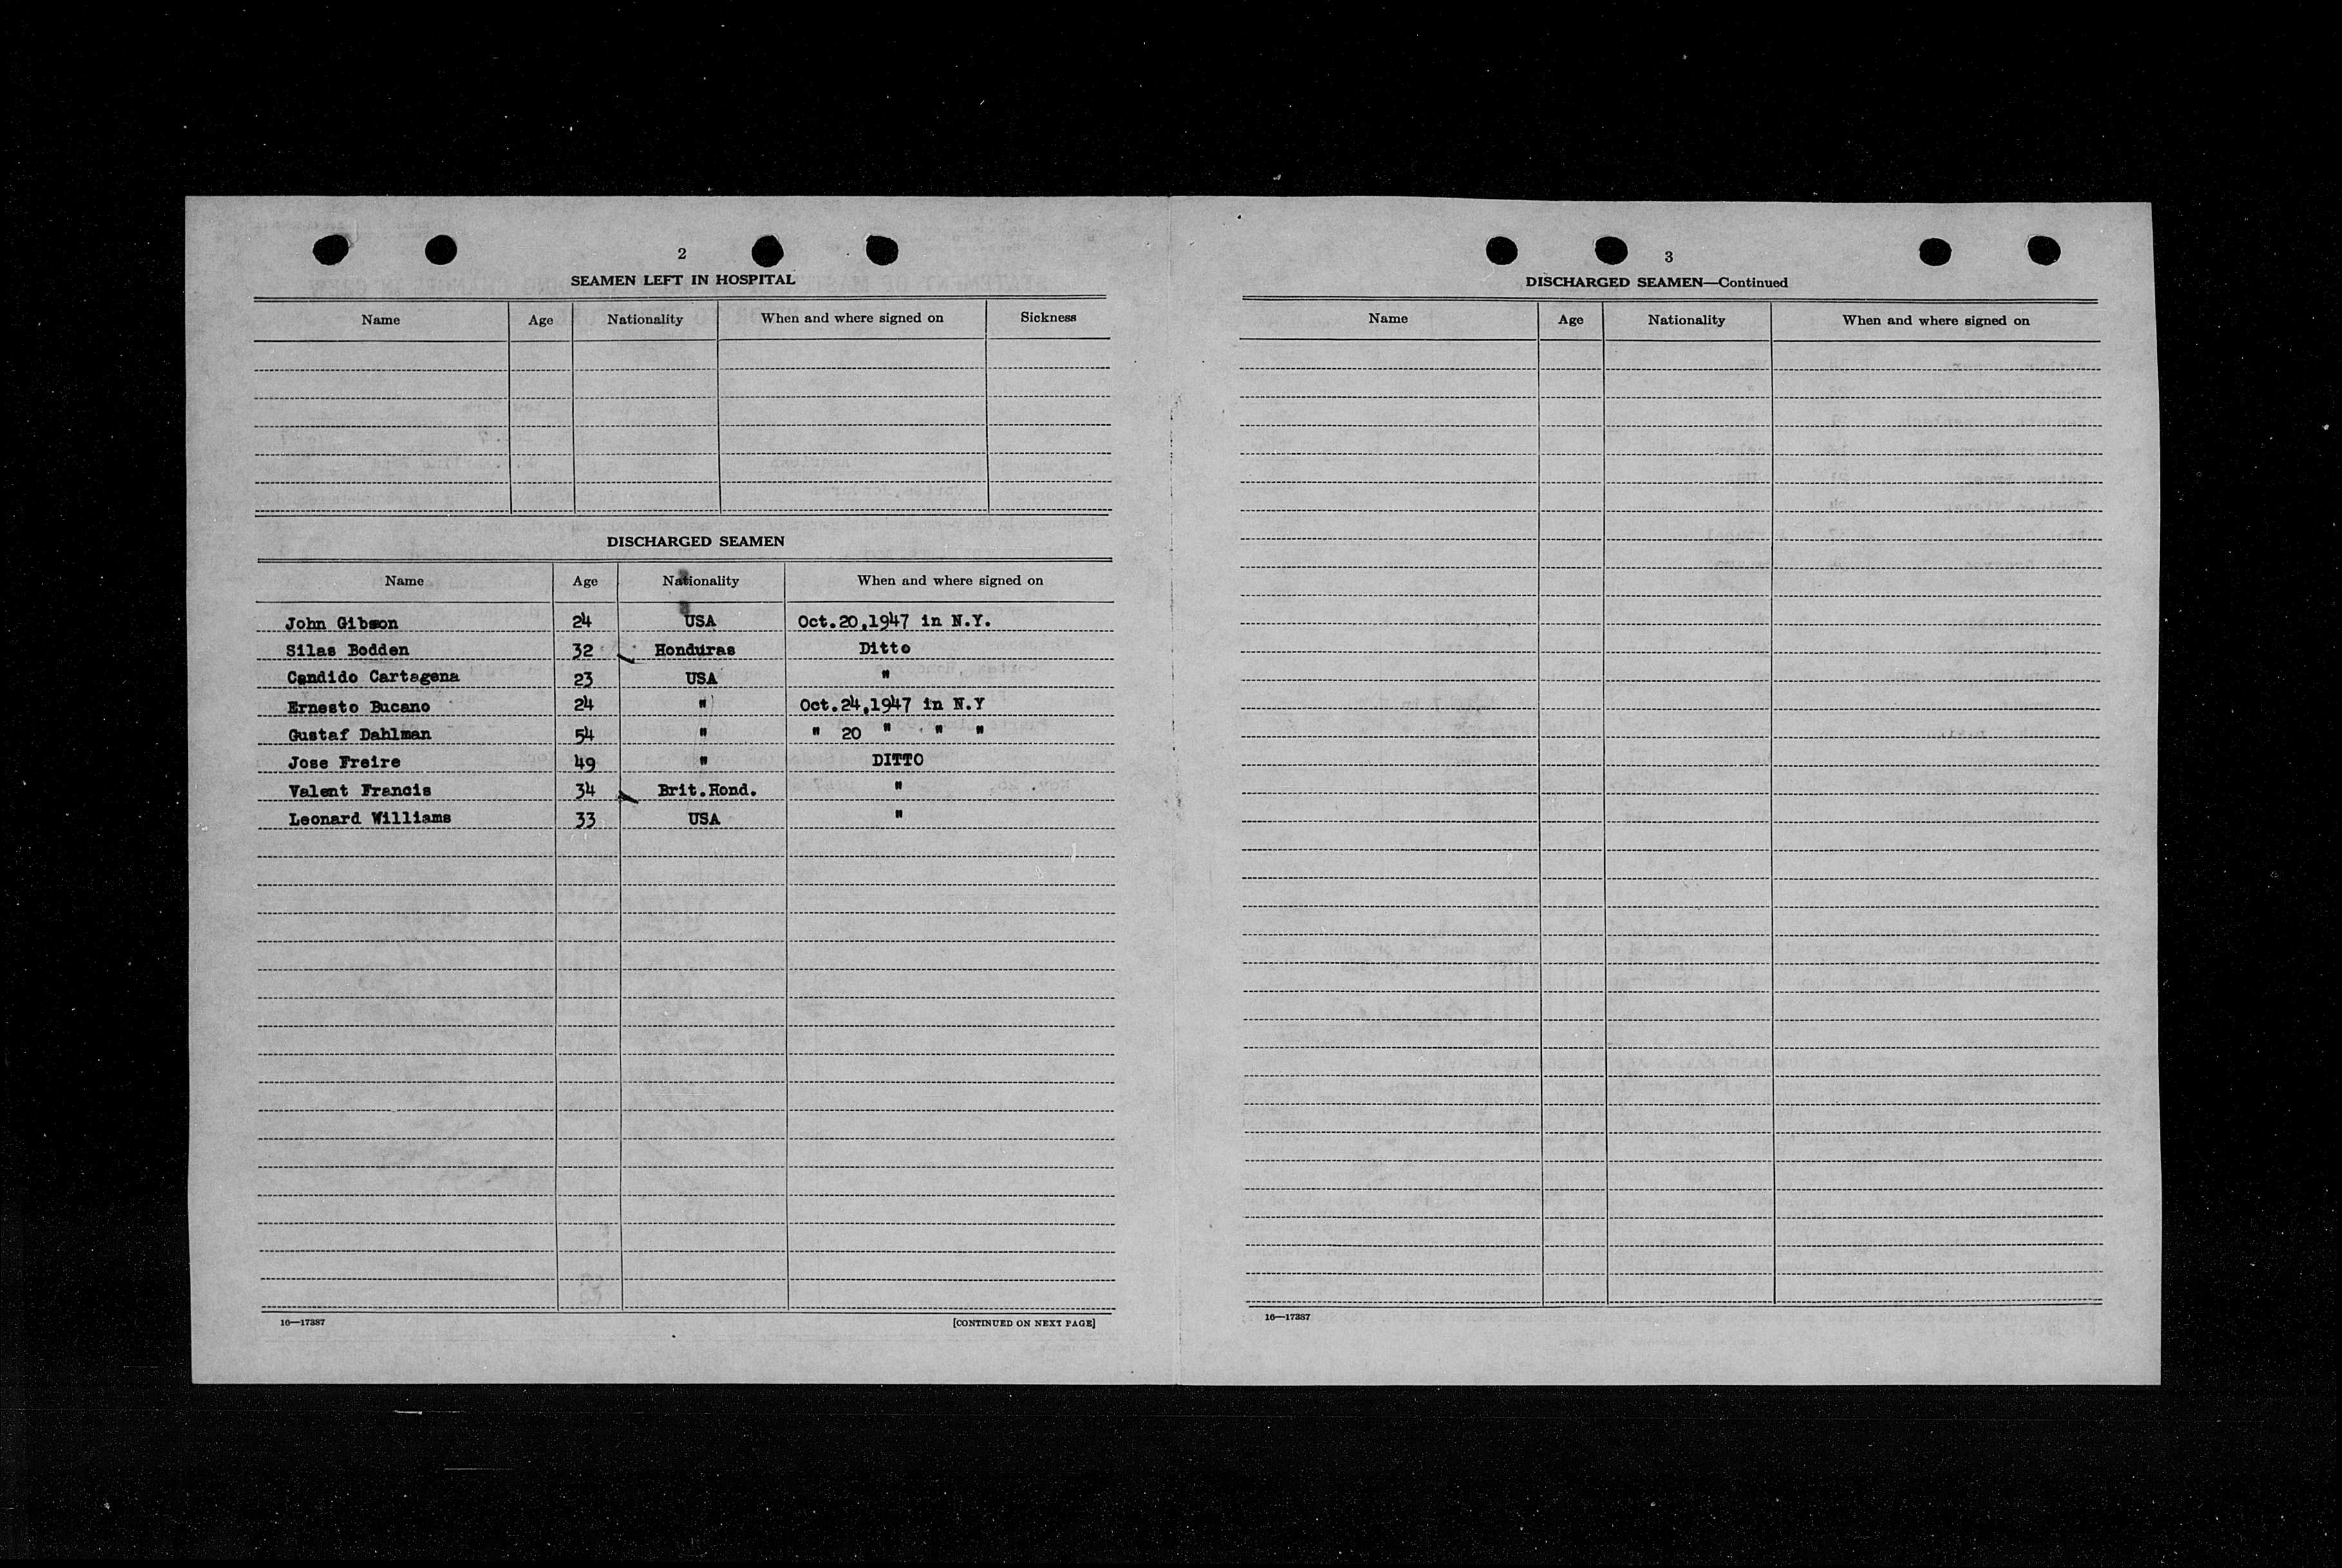 2
SEAMEN LEFT IN HOSPITAL
Name Age Nationality When and where signed on Sickness
DISCHARGED SEAMEN
Name Age Nationality When and where signed on
John Gibson 24 USA Oct.20,1947 in N.Y.
Silas Bodden 32 Honduras Ditto
Candido Cartagena 23 USA "
Ernesto Bucano 24 " Oct.24,1947 in N.Y
Gustaf Dahlman 54 " " 20 " " "
Jose Freire 49 " DITTO
Valent Francis 34 Brit.Hond. "
Leonard Williams 33 USA "
16—17387 [CONTINUED ON NEXT PAGE]
3
DISCHARGED SEAMEN—Continued
Name Age Nationality When and where signed on
16—17387